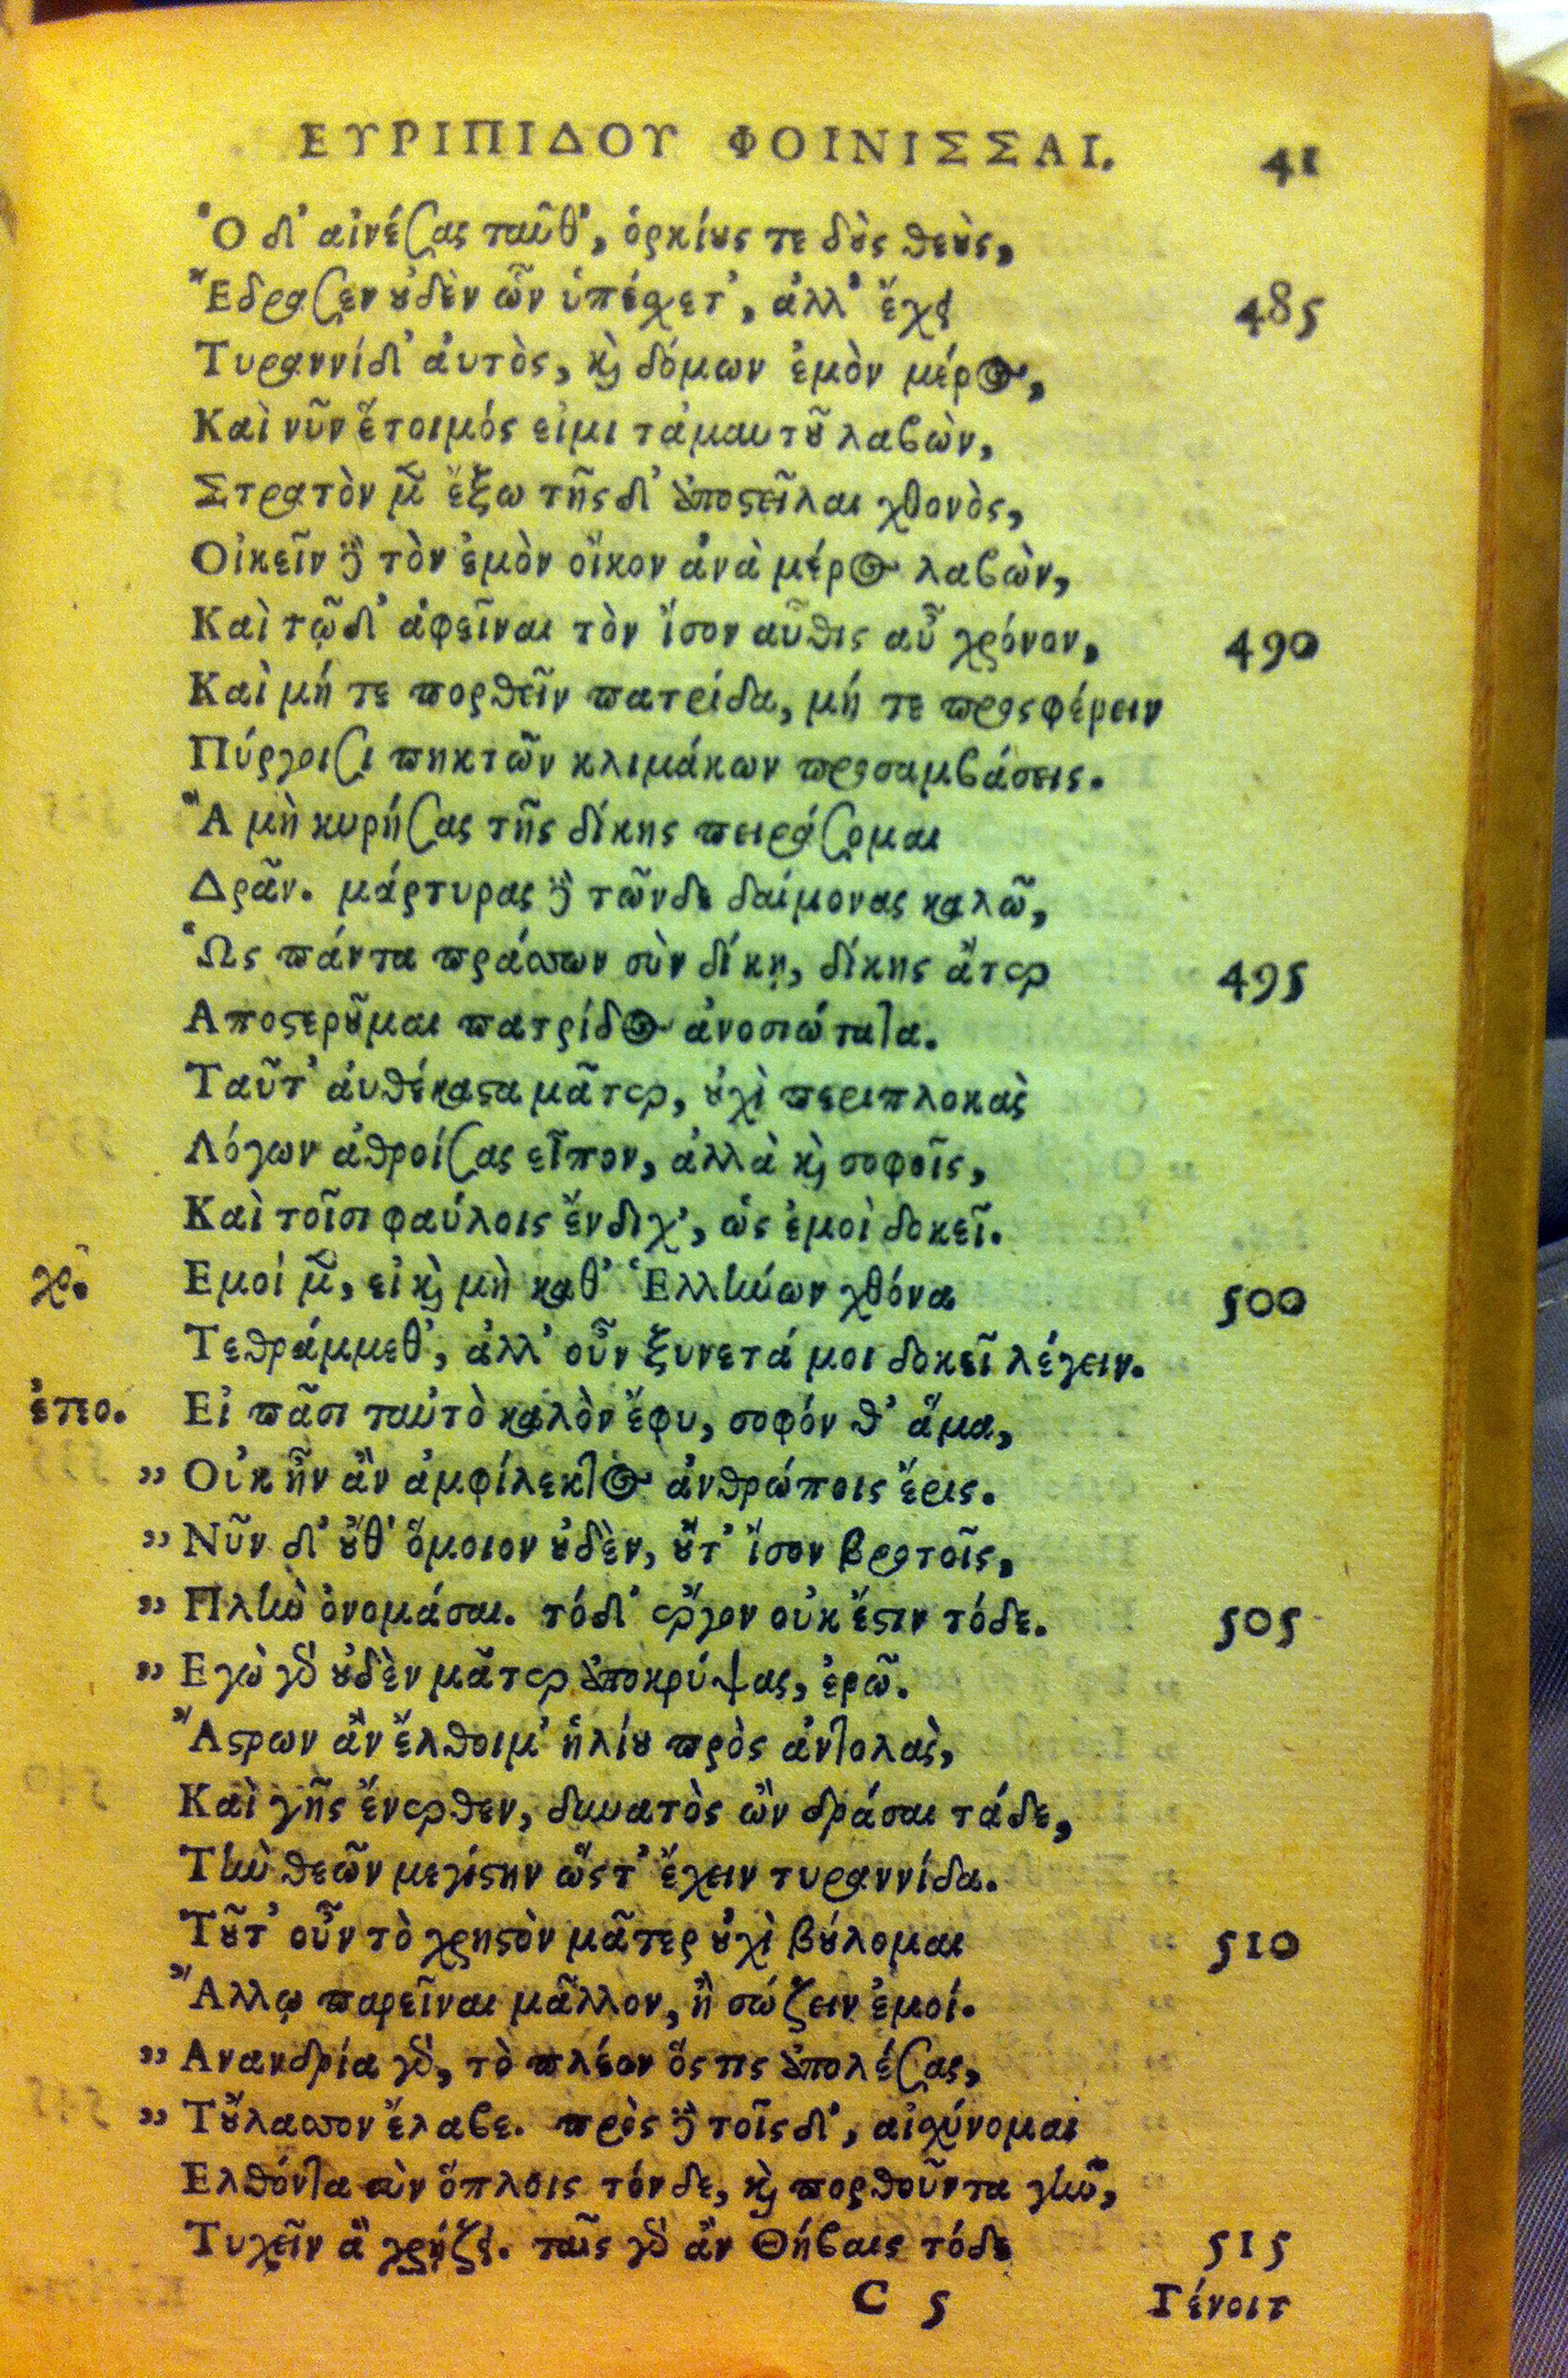 ΕΥΡΙΠΙΔΟΥ ΦΟΙΝΙΣΣΑΙ. 41
Ὁ δ' αἰνέσας ταῦθ', ὁρκίους τε δοὺς θεοὺς,
Ἔδρασεν οὐδὲν ὧν ὑπέσχετ', ἀλλ' ἔχει 485
Τυραννίδ' ἀυτὸς, καὶ δόμων ἐμὸν μέρος,
Καὶ νῦν ἕτοιμός εἰμι τἀμαυτοῦ λαβὼν,
Στρατὸν μὲν ἔξω τῆς δ' ἀποστεῖλαι χθονὸς,
Οἰκεῖν δὲ τὸν ἐμὸν οἶκον ἀνὰ μέρος λαβὼν,
Καὶ τῷδ' ἀφεῖναι τὸν ἴσον αὖθις αὖ χρόνον, 490
Καὶ μή τε πορθεῖν πατρίδα, μή τε προςφέρειν
Πύργοισι πηκτῶν κλιμάκων προσαμβάσεις.
Ἃ μὴ κυρήσας τῆς δίκης πειράσομαι
Δρᾶν. μάρτυρας δὲ τῶνδε δαίμονας καλῶ,
Ὡς πάντα πράσσων σὺν δίκῃ, δίκης ἄτερ 495
Αποστεροῦμαι πατρίδος ἀνοσιώτατα.
Ταῦτ' ἀυθέκαστα μᾶτερ, οὐχὶ περιπλοκὰς
Λόγων ἀθροίσας εἶπον, ἀλλὰ καὶ σοφοῖς,
Καὶ τοῖσι φαύλοις ἔνδιχ', ὡς ἐμοὶ δοκεῖ.
χο. Εμοί μὲν, εἰ καὶ μὴ καθ' Ἑλλήνων χθόνα 500
Τεθράμμεθ', ἀλλ' οὖν ξυνετά μοι δοκεῖ λέγειν.
ἐτεο. Εἰ πᾶσι ταὐτὸ καλὸν ἔφυ, σοφόν θ' ἅμα,
„ Οὐκ ἦν ἂν ἀμφίλεκτος ἀνθρώποις ἔρις.
„ Νῦν δ' οὔθ' ὅμοιον οὐδὲν, οὔτ' ἴσον βροτοῖς,
„ Πλὴν ὀνομάσαι. τόδ' ἔργον οὐκ ἔστιν τόδε. 505
„ Εγὼ γὰρ οὐδὲν μᾶτερ ἀποκρύψας, ἐρῶ.
Ἄστρων ἂν ἔλθοιμ' ἡλίου πρὸς ἀντολὰς,
Καὶ γῆς ἔνερθεν, δυνατὸς ὢν δράσαι τάδε,
Τὴν θεῶν μεγίστην ὥςτ' ἔχειν τυραννίδα.
Τοῦτ' οὖν τὸ χρηστὸν μᾶτερ οὐχὶ βούλομαι 510
Ἄλλῳ παρεῖναι μᾶλλον, ἢ σώζειν ἐμοί.
„ Ανανδρία γὰρ, τὸ πλέον ὅς τις ἀπολέσας,
„ Τοὔλασσον ἔλαβε. πρὸς δὲ τοῖς δ', αἰσχύνομαι
Ελθόντα σὺν ὅπλοις τόνδε, καὶ πορθοῦντα γῆν,
Τυχεῖν ἃ χρῄζει. ταῖς γὰρ ἂν Θήβαις τόδε 515
C 5 Γένοιτ